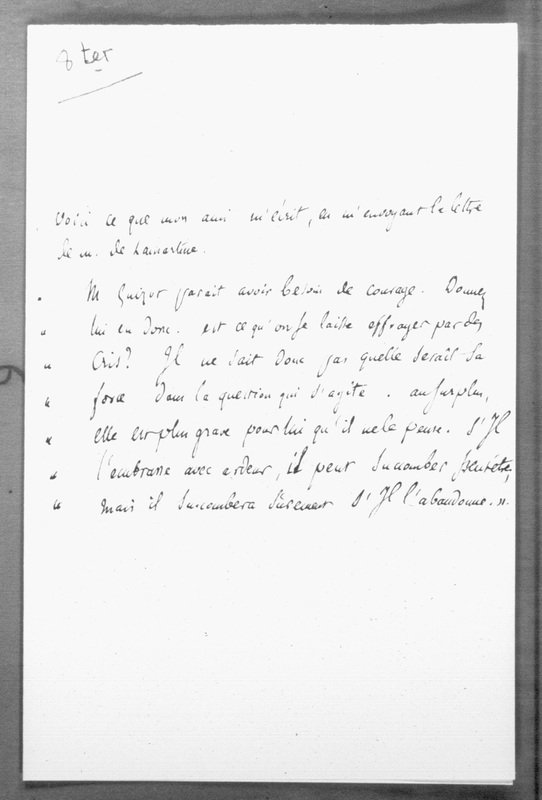 8 ter
Voici ce que mon ami m'écrit, en m'envoyant la lettre
de M. de Lamartine.
" M Guizot parait avoir besoin de courage. Donnez
" lui en donc. est ce qu'on se laisse effrayer par des
" cris? Il ne sait donc pas quelle serait sa
" force dans la question qui s'agite. au surplus,
" elle est plus grave pour lui qu'il ne le pense. S'Il
" l'embrasse avec ardeur, il peut succomber peut-être,
" mais il succombera surement s'Il l'abandonne. "